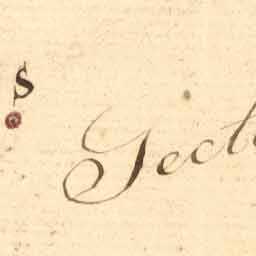 s
Sect